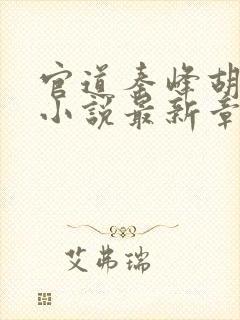 官道秦峰胡
小说最新章
艾弗瑞